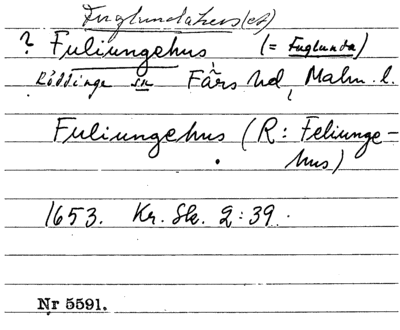 Fuglundahus(et)
? Fuliungehus (= Fuglunda)
Röddinge sn Färs hd, Malm. l.
Fuliungehus (R: Feliunge-
hus)
1653. Kr. Sk. 2:39.
Nr 5591.